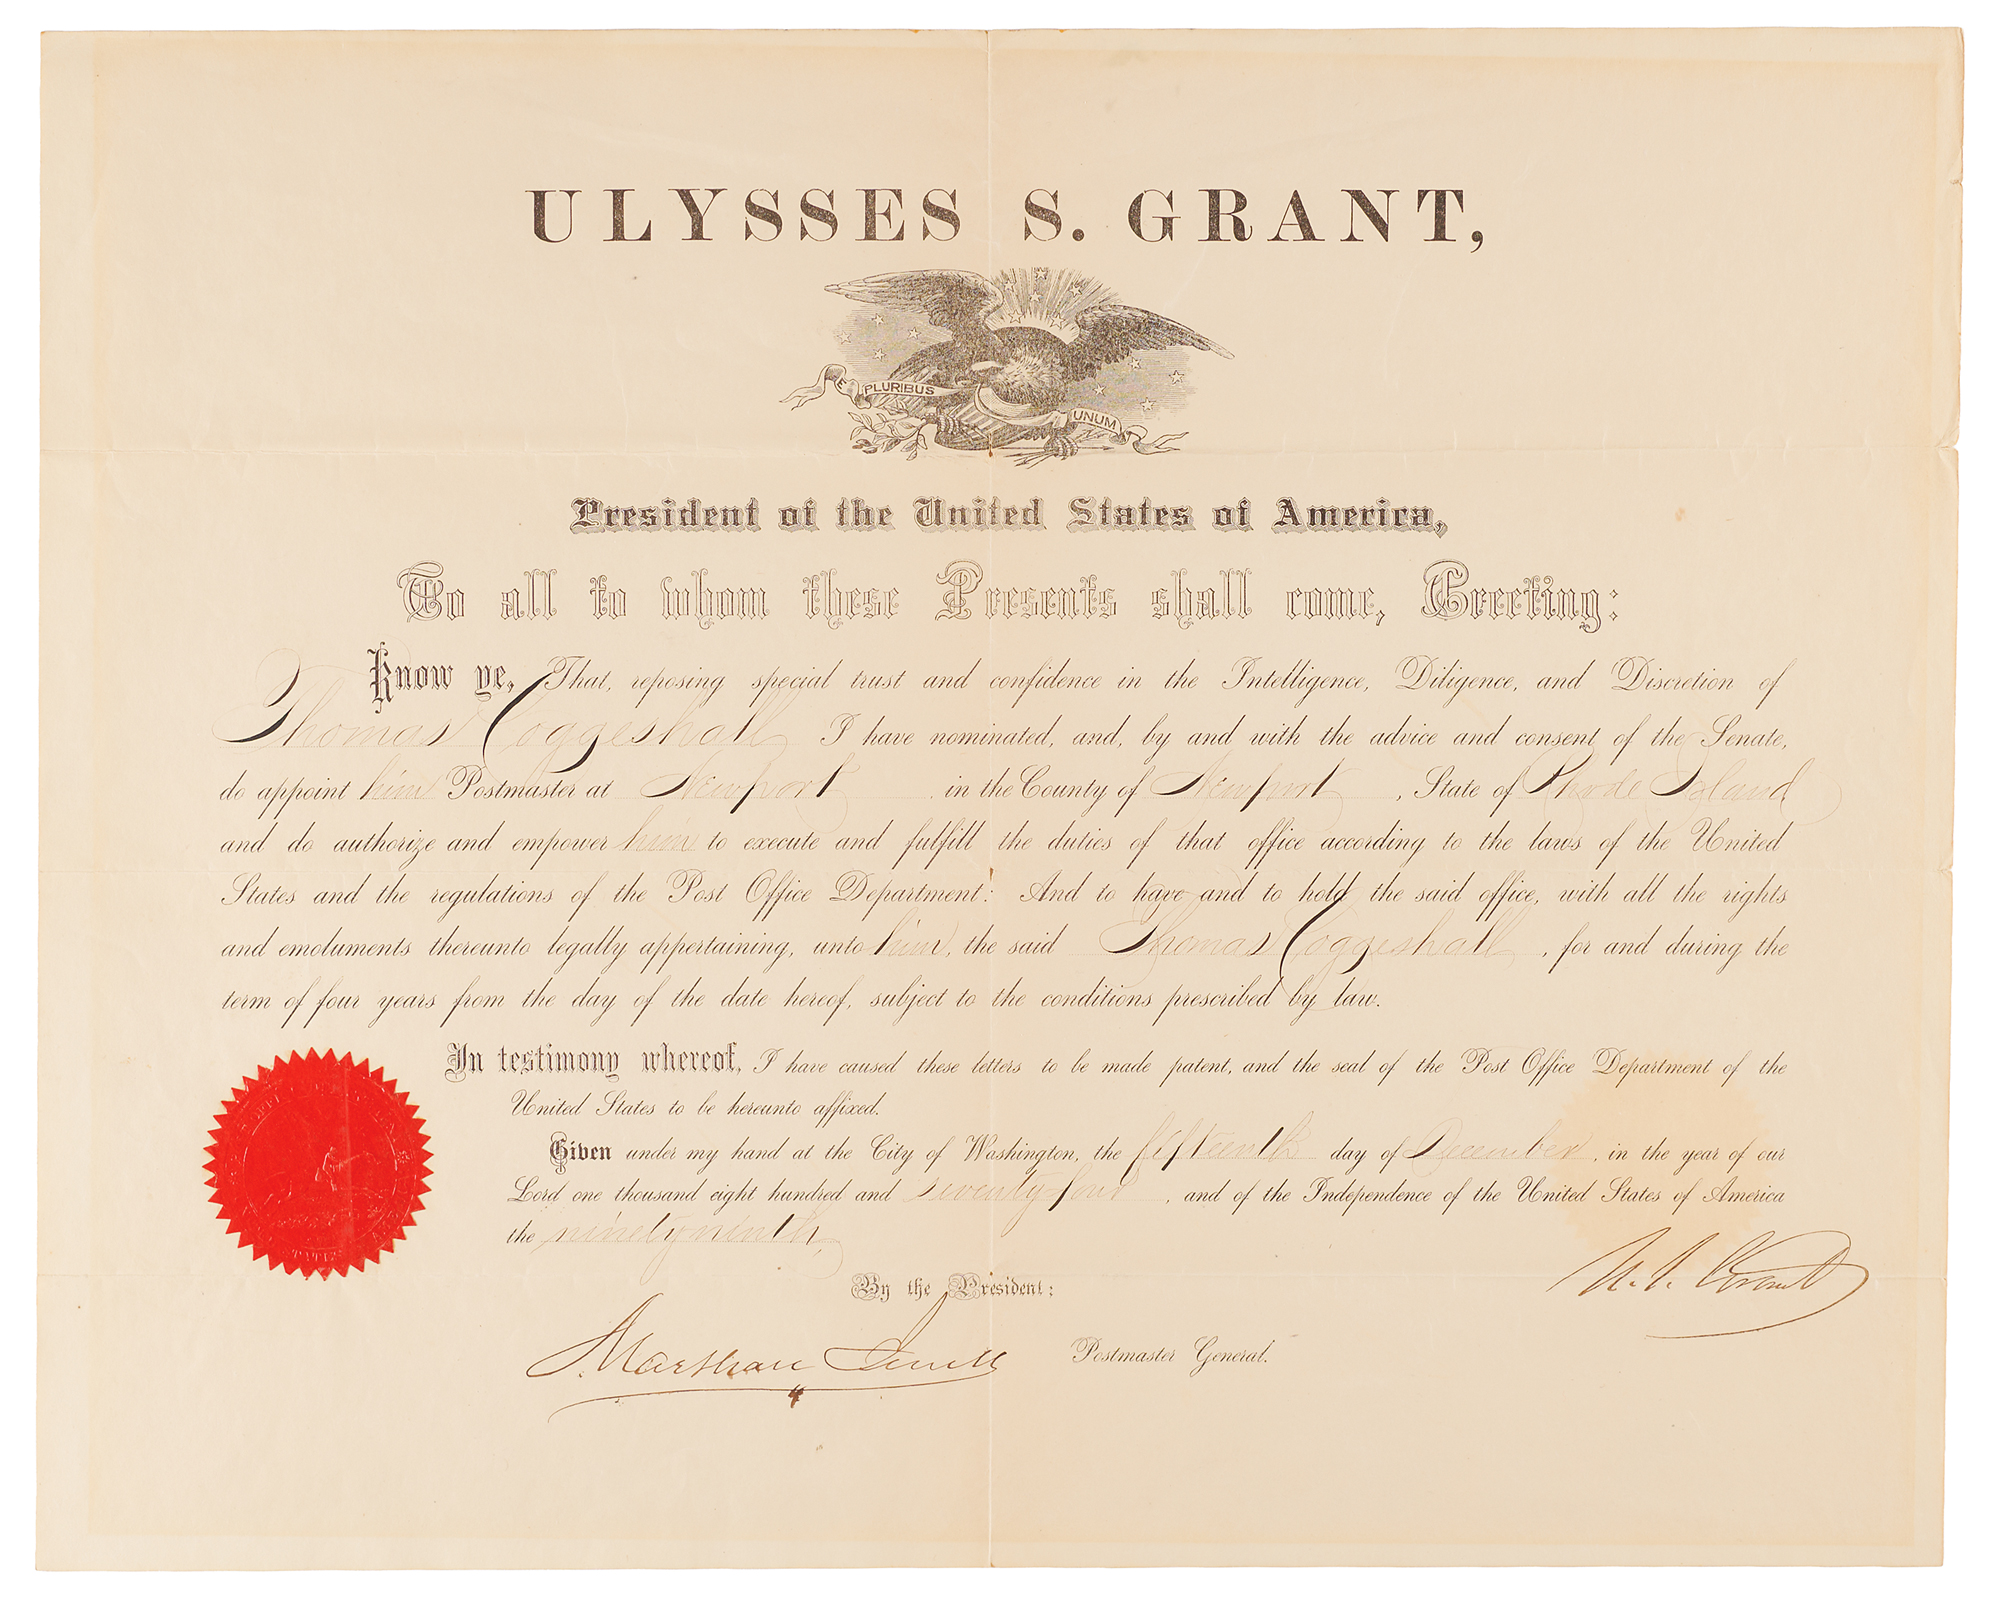 ULYSSES S. GRANT,
E PLURIBUS UNUM
President of the United States of America,
To all to whom these Presents shall come, Greeting:
Know ye, That, reposing special trust and confidence in the Intelligence, Diligence, and Discretion of
Thomas Coggeshall I have nominated, and, by and with the advice and consent of the Senate,
do appoint him Postmaster at Newport in the County of Newport, State of Rhode Island
and do authorize and empower him to execute and fulfill the duties of that office according to the laws of the United
States and the regulations of the Post Office Department: And to have and to hold the said office, with all the rights
and emoluments thereunto legally appertaining, unto him, the said Thomas Coggeshall, for and during the
term of four years from the day of the date hereof, subject to the conditions prescribed by law.
In testimony whereof, I have caused these letters to be made patent, and the seal of the Post Office Department of the
United States to be hereunto affixed.
Given under my hand at the City of Washington, the fifteenth day of December, in the year of our
Lord one thousand eight hundred and seventy-four, and of the Independence of the United States of America
the ninety ninth,
U. S. Grant
By the President:
Marshall Jewell Postmaster General.